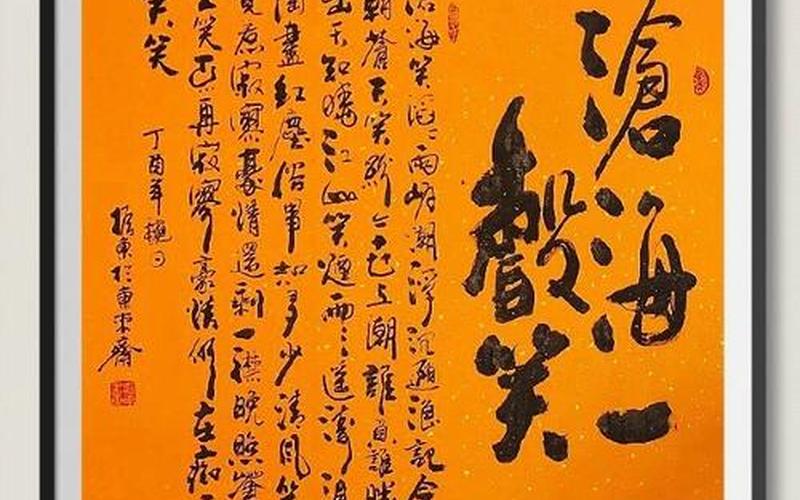 滄海一
聲笑
滄海笑滔滔兩岸潮浮沉隨浪記今
朝蒼天笑紛紛世上潮誰負誰勝
出天知曉江山笑煙雨遥濤浪
淘盡紅塵俗事知多少清風笑
竟惹寂寥豪情還剩一襟晚照蒼
生笑不再寂寥豪情仍在痴
笑笑
丁酉年
振東於東來齋